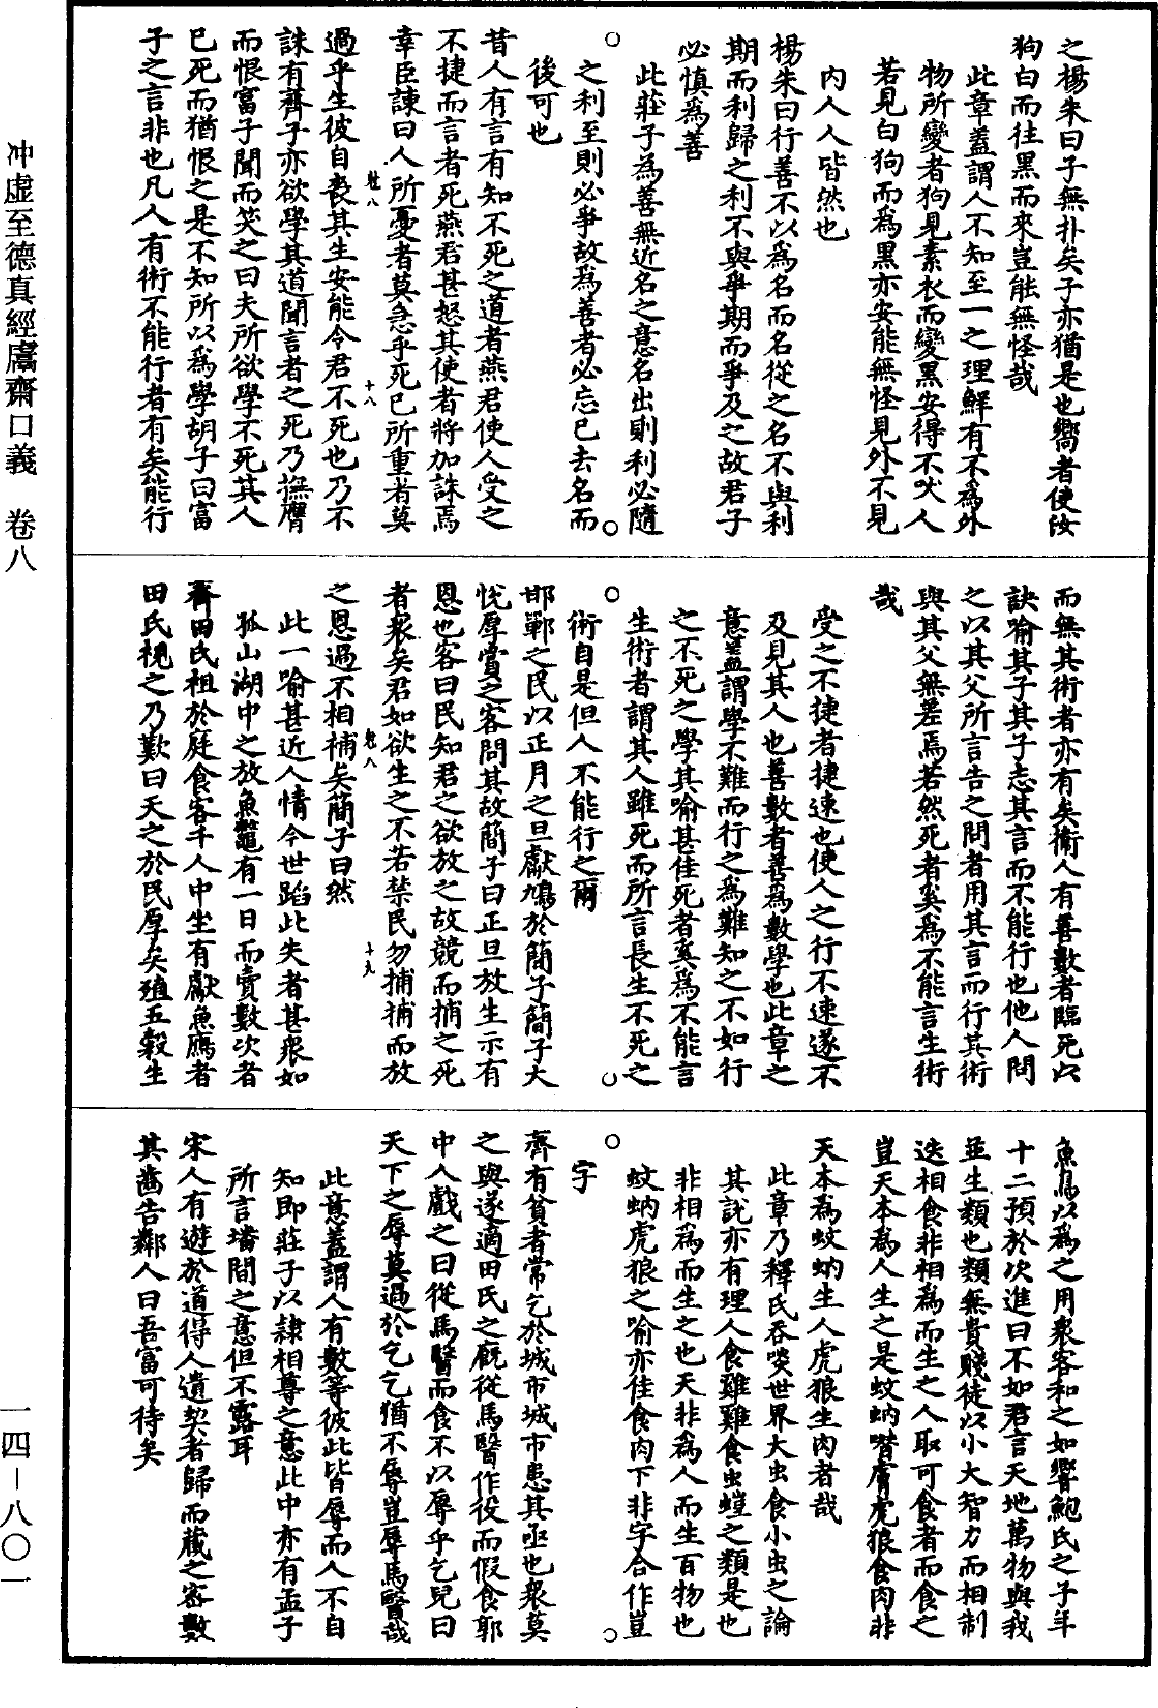 之楊朱曰子無扑矣子亦猶是也嚮者使汝
狗白而往黑而來豈能無怪哉
此章蓋謂人不知至一之理鮮有不為外
物所變者狗見素衣而變黑安得不吠人
若見白狗而為黑亦安能無怪見外不見
內人人皆然也
楊朱曰行善不以為名而名從之名不與利
期而利歸之利不與爭期而爭及之故君子
必慎為善
此莊子為善無近名之意名出則利必隨
之利至則必爭故為善者必忘己去名而
後可也
昔人有言有知不死之道者燕君使人受之
不捷而言者死燕君甚怒其使者將加誅焉
幸臣諫曰人所憂者莫急乎死己所重者莫
過乎生彼自喪其生安能令君不死也乃不
誅有齊子亦欲學其道聞言者之死乃撫膺
而恨富子聞而笑之曰夫所欲學不死其人
已死而猶恨之是不知所以為學胡子曰富
子之言非也凡人有術不能行者有矣能行
而無其術者亦有矣衛人有善數者臨死以
訣喻其子其子志其言而不能行也他人問
之以其父所言告之問者用其言而行其術
與其父無差焉若然死者奚為不能言生術
哉
受之不捷者捷速也使人之行不速遂不
及見其人也善數者善為數學也此章之
意蓋謂學不難而行之為難知之不如行
之不死之學其喻甚佳死者奚為不能言
生術者謂其人雖死而所言長生不死之
術自是但人不能行之爾
邯鄲之民以正月之旦獻鳩於簡子簡子大
悅厚賞之客問其故簡子曰正旦放生示有
恩也客曰民知君之欲放之故競而捕之死
者眾矣君如欲生之不若禁民勿捕捕而放
之恩過不相補矣簡子曰然
此一喻甚近人情今世蹈此失者甚眾如
孤山湖中之放魚鼈有一日而賣數次者
齊田氏祖於庭食客千人中坐有獻魚鴈者
田氏視之乃歎曰天之於民厚矣殖五穀生
魚鳥以為之用眾客和之如響鮑氏之子年
十二預於次進曰不如君言天地萬物與我
並生類也類無貴賤徒以小大智力而相制
迭相食非相為而生之人取可食者而食之
豈天本為人生之是蚊蚋噆膚虎狼食肉非
天本為蚊蚋生人虎狼生肉者哉
此章乃釋氏吞啖世界大虫食小虫之論
其說亦有理人食雞雞食虫螘之類是也
非相為而生之也天非為人而生百物也
蚊蚋虎狼之喻亦佳食肉下非字合作豈
字
齊有貧者常乞於城市城市患其亟也眾莫
之與遂適田氏之廐從馬醫作役而假食郭
中人戲之曰從馬醫而食不以辱乎乞兒曰
天下之辱莫過於乞乞猶不辱豈辱馬醫哉
此意蓋謂人有數等彼此皆辱而人不自
知即莊子以隸相尊之意此中亦有孟子
所言墦間之意但不露耳
宋人有遊於道得人遺契者歸而藏之密數
其齒告鄰人曰吾富可待矣
冲虛至德真經鬳齋口義　卷八
一四－八〇一